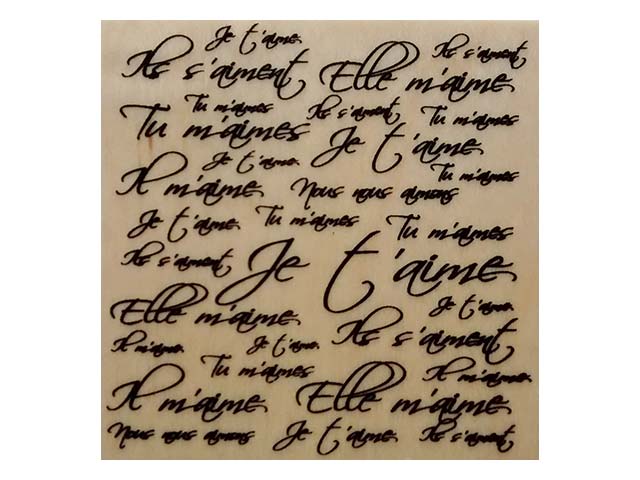 Je t'aime.
Ils s'aiment
Ils s'aiment Elle m'aime
Tu m'aimes Ils s'aiment Tu m'aimes
Tu m'aimes Je t'aime
Je t'aime. Tu m'aimes
Il m'aime Nous nous aimons
Je t'aime Tu m'aimes Tu m'aimes
Ils s'aiment Je t'aime
Elle m'aime Je t'aime.
Ils s'aiment
Il m'aime. Je t'aime.
Tu m'aimes Il m'aime.
Il m'aime Elle m'aime
Nous nous aimons Je t'aime Ils s'aiment